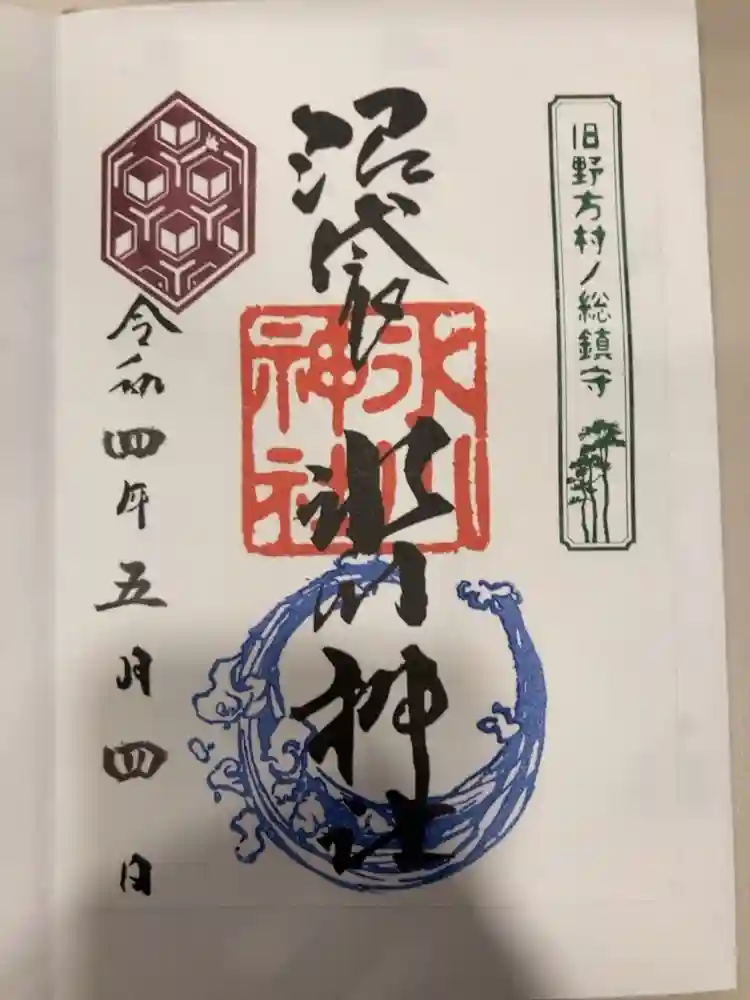 旧野方村ノ総鎮守
沼袋氷川神社
氷川
神社
令和四年五月四日